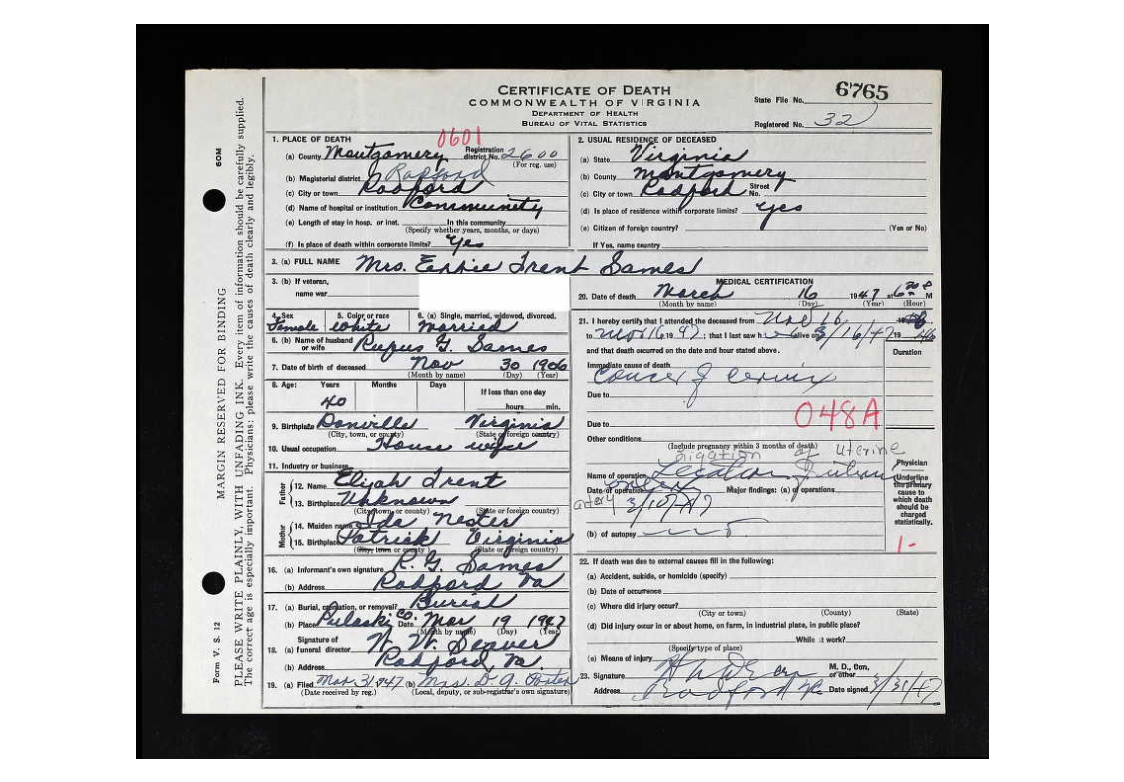 CERTIFICATE OF DEATH
COMMONWEALTH OF VIRGINIA
DEPARTMENT OF HEALTH
BUREAU OF VITAL STATISTICS
State File No. 6765
Registered No. 32
0601
1. PLACE OF DEATH
(a) County Montgomery Registration district No. 2600
(For reg. use)
(b) Magisterial district Radford
(c) City or town Radford
(d) Name of hospital or institution Community
(e) Length of stay in hosp. or inst. In this community
(Specify whether years, months, or days)
(f) Is place of death within corporate limits? Yes
2. USUAL RESIDENCE OF DECEASED
(a) State Virginia
(b) County Montgomery
(c) City or town Radford Street No.
(d) Is place of residence within corporate limits? Yes
(e) Citizen of foreign country? (Yes or No)
If Yes, name country
3. (a) FULL NAME Mrs. Effie Trent Sames
3. (b) If veteran,
name war
4. Sex Female
5. Color or race White
6. (a) Single, married, widowed, divorced. Married
6. (b) Name of husband or wife Rufus G. Sames
7. Date of birth of deceased Nov 30 1906
(Month by name) (Day) (Year)
8. Age: Years Months Days If less than one day
40 hours min.
9. Birthplace Danville Virginia
(City, town, or county) (State or foreign country)
10. Usual occupation House wife
11. Industry or business
Father
12. Name Elijah Trent
13. Birthplace Unknown
(City, town or county) (State or foreign country)
Mother
14. Maiden name Ida Nester
15. Birthplace Patrick Virginia
(City, town or county) (State or foreign country)
16. (a) Informant's own signature R. G. Sames
(b) Address Radford Va
17. (a) Burial, cremation, or removal? Burial
(b) Place Pulaski Co. Date Mar 19 1947
(Month by name) (Day) (Year)
18. (a) Signature of funeral director W. W. Seaver
(b) Address Radford, Va.
19. (a) Filed Mar 31 1947 (b) Mrs. D. A.
(Date received by reg.) (Local, deputy, or sub-registrar's own signature)
MEDICAL CERTIFICATION
20. Date of death March 16 1947 at 6 M
(Month by name) (Day) (Year) (Hour)
21. I hereby certify that I attended the deceased from
to Mar 16 1947; that I last saw h alive on 3/16/47
and that death occurred on the date and hour stated above.
Duration
Immediate cause of death
Cancer of cervix
Due to
048A
Due to
Other conditions
(Include pregnancy within 3 months of death)
ligation of uterine
Name of operation
artery
Date of operation 3/10/47 Major findings: (a) of operations
(b) of autopsy
Physician
Underline the primary cause to which death should be charged statistically.
1-
22. If death was due to external causes fill in the following:
(a) Accident, suicide, or homicide (specify)
(b) Date of occurrence
(c) Where did injury occur?
(City or town) (County) (State)
(d) Did injury occur in or about home, on farm, in industrial place, in public place?
While at work?
(Specify type of place)
(e) Means of injury
23. Signature M. D., Con, or other
Address Radford Va Date signed 3/31/47
Form V. S. 12
60M
MARGIN RESERVED FOR BINDING
PLEASE WRITE PLAINLY, WITH UNFADING INK. Every item of information should be carefully supplied.
The correct age is especially important. Physicians: please write the causes of death clearly and legibly.